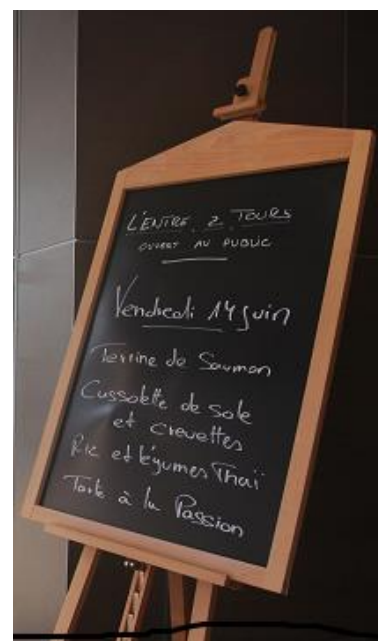 L'ENTRE 2 TOURS
OUVERT AU PUBLIC
Vendredi 14 Juin
Terrine de Saumon
Cussolette de sole
et crevettes
Riz et légumes Thaï
Tarte à la Passion